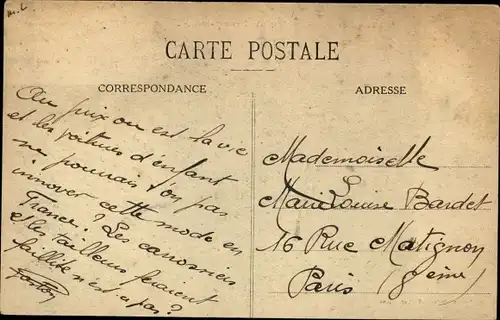 M. L
CARTE POSTALE
CORRESPONDANCE
ADRESSE
Au prix ou est la vie
et les voitures d'enfant
ne pourrais t'on pas
innover cette mode en
France? Les carrossiers
et les tailleurs feraient
faillite n'est-ce pas?
Gaston
Mademoiselle
Marie Louise Bardet
16 Rue Matignon
Paris (8eme)